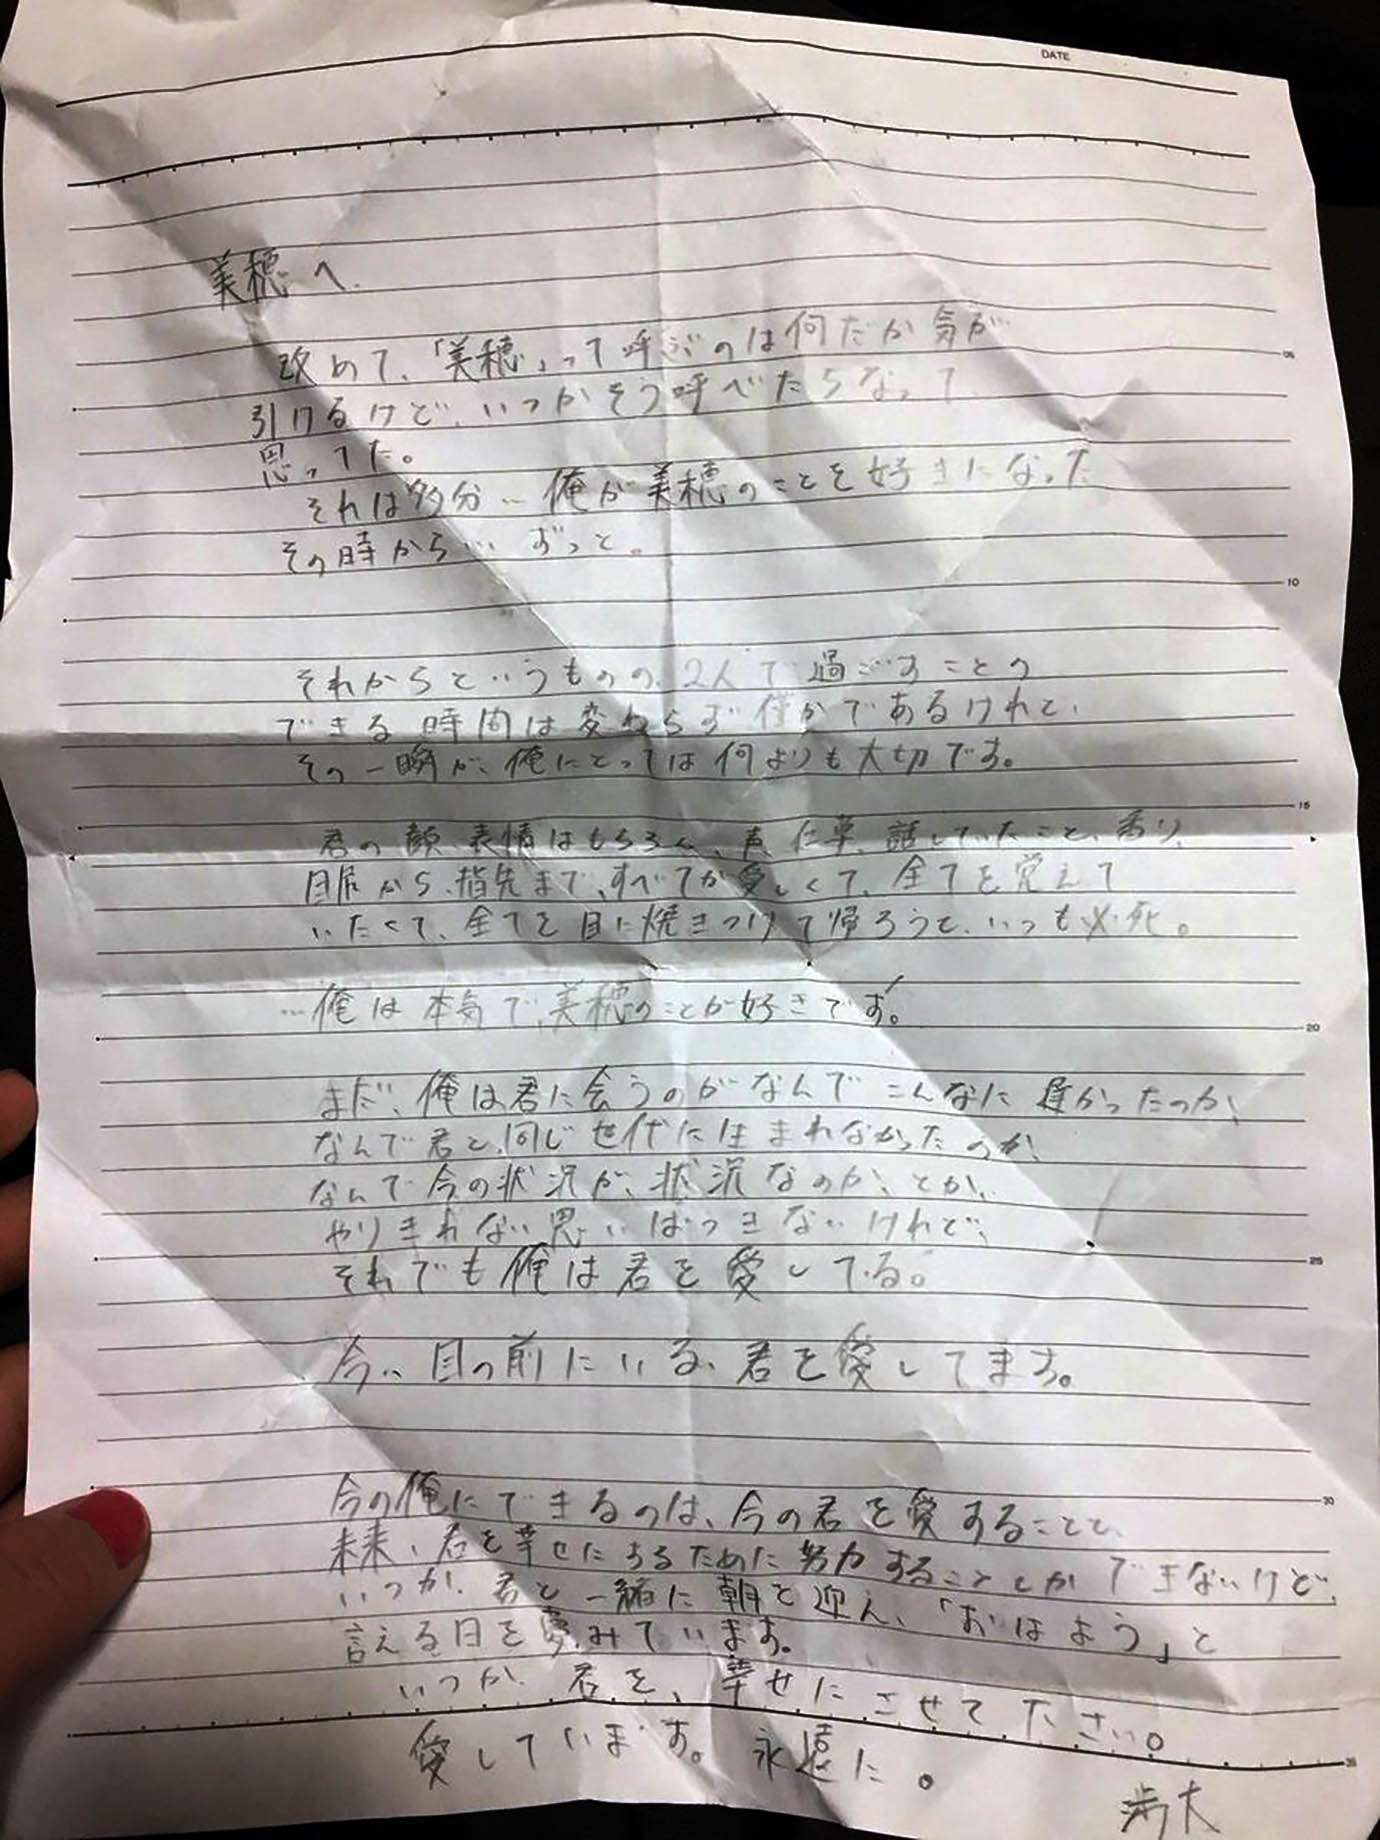 DATE
美穂へ
改めて、「美穂」って呼ぶのは何だか気が
引けるけど、いつかそう呼べたらなって
思ってた。
それは多分…俺が美穂のことを好きになった
その時から… ずっと。
それからというものの、2人で過ごすことの
できる時間は変わらず僅かであるけれど、
その一瞬が、俺にとっては何よりも大切です。
君の顔、表情はもちろん、声、仕草、話していたこと、香り、
目尻から、指先まで、すべてが愛しくて、全てを覚えて
いたくて、全てを目に焼きつけて帰ろうと、いつも必死。
…俺は本気で、美穂のことが好きです。
まだ、俺は君に会うのがなんでこんなに遅かったのか、
なんで君と、同じ世代に生まれなかったのか、
なんで今の状況が、状況なのか、とか、
やりきれない思いはつきないけれど、
それでも俺は君を愛してる。
今、目の前にいる、君を愛してます。
今の俺にできるのは、今の君を愛することと、
未来、君を幸せにするために努力することしかできないけど、
いつか、君と一緒に朝を迎え、「おはよう」と
言える日を夢みています。
いつか、君を、幸せにさせてください。
愛しています。永遠に。
05
10
15
20
25
30
35